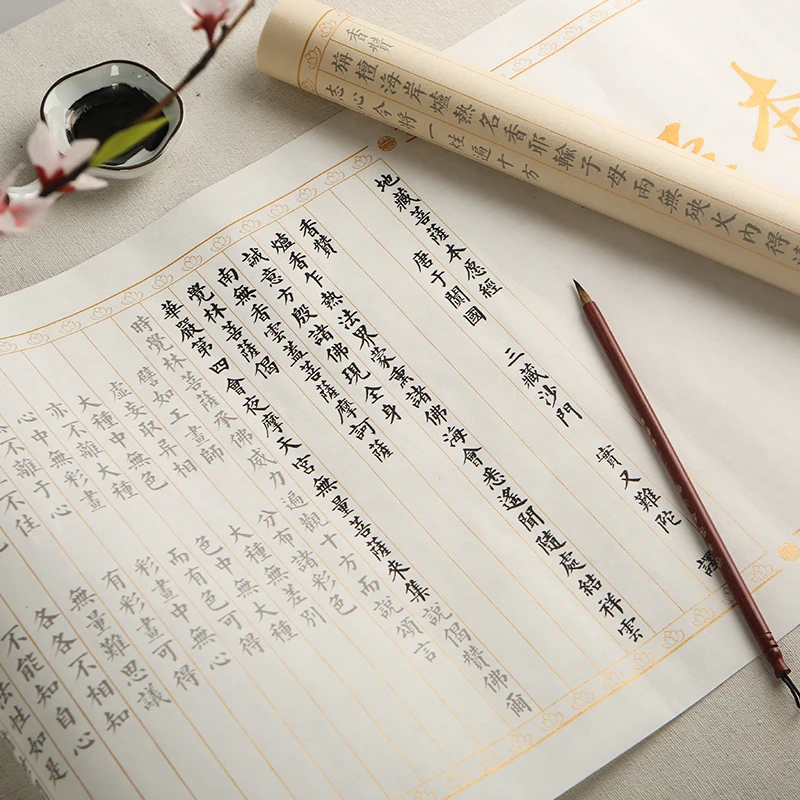 香讚
栴檀海岸爐熱名香耶輸子母兩無殃火內得
志心今將一炷遍十方
地藏菩薩本愿經
唐于闐國 三藏沙門 實叉難陀 譯
香讚
爐香乍熱法界蒙熏諸佛海會悉遙聞隨處結祥雲
誠意方殷諸佛現全身
南無香雲蓋菩薩摩訶薩
覺林菩薩偈
華嚴第四會夜摩天宮無量菩薩來集說偈贊佛爾
時覺林菩薩承佛威力遍觀十方而說頌言
譬如工畫師 分布諸彩色
虛妄取異相 大種無差別
大種中無色 色中無大種
亦不離大種 而有色可得
心中無彩畫 彩畫中無心
不離于心 有彩畫可得
不住 無量難思議
各各不相知
不能知自心
法性如是